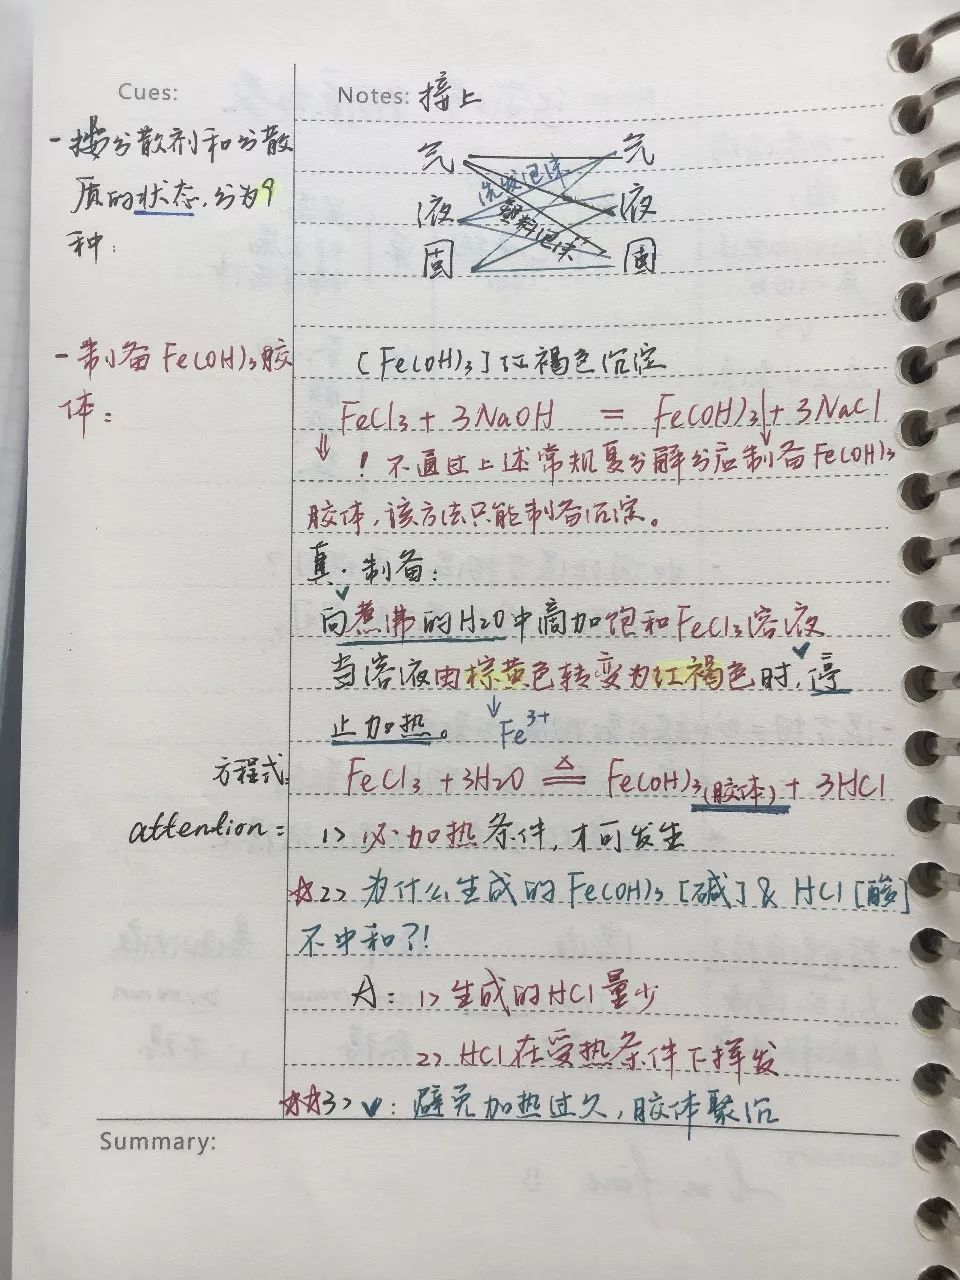 Cues:
Notes: 接上
-按分散剂和分散
质的状态,分为9
种:
气 气
液 液
固 固
塑料泡沫
-制备Fe(OH)₃胶
体:
[Fe(OH)₃]红褐色沉淀
FeCl₃ + 3NaOH = Fe(OH)₃↓ + 3NaCl
⇓ ! 不通过上述常规复分解分应制备Fe(OH)₃
胶体,该方法只能制备沉淀。
真·制备:
向煮沸的H2O中滴加饱和FeCl₃溶液
当溶液由棕黄色转变为红褐色时,停
止加热。 ↓Fe³⁺
方程式:
FeCl₃ + 3H2O ≜ Fe(OH)₃(胶体) + 3HCl
attention:
1> 必·加热条件,才可发生
☆2> 为什么生成的Fe(OH)₃[碱]& HCl[酸]
不中和?!
A: 1> 生成的HCl量少
2> HCl在受热条件下挥发
☆☆3> ✓: 避免加热过久,胶体聚沉
Summary: